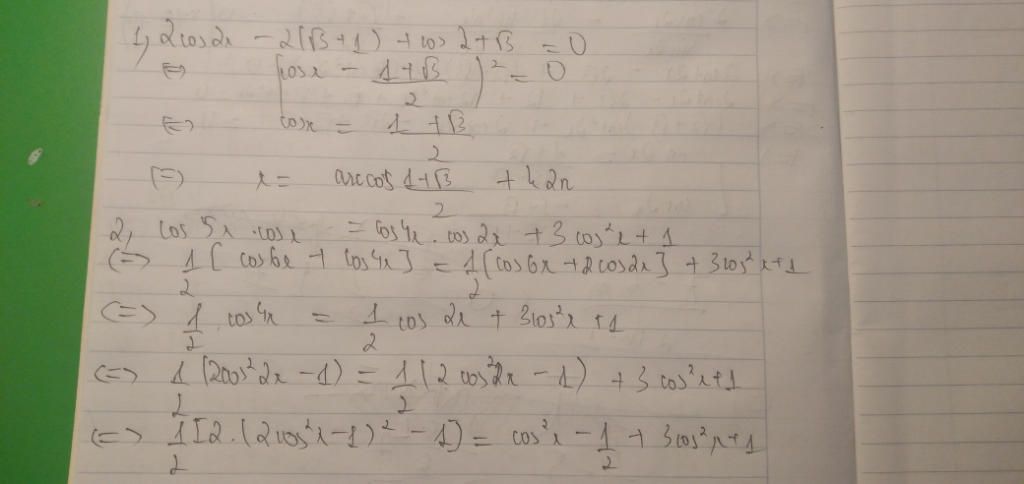 1, 2cos2x - 2(√3+1) + cos 2+√3 = 0
⇔ (cosx - (1+√3)/2)² = 0
⇔ cosx = (1+√3)/2
⇔ x = arccos (1+√3)/2 + k2π
2, cos 5x . cosx = cos4x . cos 2x + 3 cos²x + 1
⇔ 1/2 [cos6x + cos4x] = 1/2 [cos6x + 2cos2x] + 3cos²x+1
⇔ 1/2 cos4x = 1/2 cos 2x + 3cos²x + 1
⇔ 1/2 (2cos²2x - 1) = 1/2 (2cos²2x - 1) + 3 cos²x+1
⇔ 1/2 [2.(2cos²x-1)² - 1] = cos²x - 1/2 + 3cos²x+1